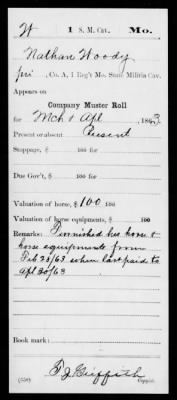 W | 1 S. M. Cav. | Mo.
Nathan Woody
Pri, Co. A, 1 Reg't Mo. State Militia Cav.
Appears on
Company Muster Roll
for Mch & Apl, 1863.
Present or absent Present
Stoppage, $ 100 for
Due Gov't, $ 100 for
Valuation of horse, $ 100 100
Valuation of horse equipments, $ 100
Remarks: Furnished his horse &
horse equipments from
Feb 28/63 when last paid to
Apl 30/63
Book mark:
T J Griffith
(358) Copyist.